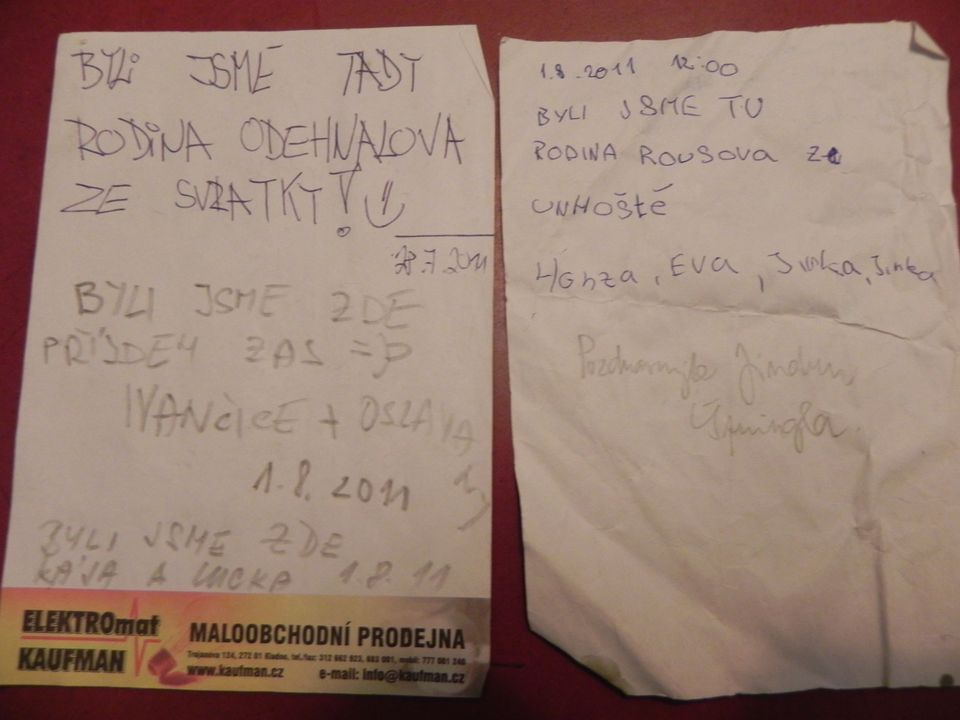 BYLI JSME TADY
RODINA ODEHNALOVA
ZE SVRATKY! !
28.7.2011
BYLI JSME ZDE
PŘÍJDEM ZAS =P
IVANČICE + OSLAVA
1.8.2011
BYLI JSME ZDE
KÁJA A LUCKA 1.8.11
ELEKTROmat
KAUFMAN
MALOOBCHODNÍ PRODEJNA
Trojanova 134, 272 01 Kladno, tel./fax: 312 662 823, 683 001, mobil: 777 001 240
www.kaufman.cz e-mail: info@kaufman.cz
1.8.2011 12:00
BYLI JSME TU
RODINA ROUSOVA ZE
UNHOŠtě
Honza, EVA, Jirka, Jirka